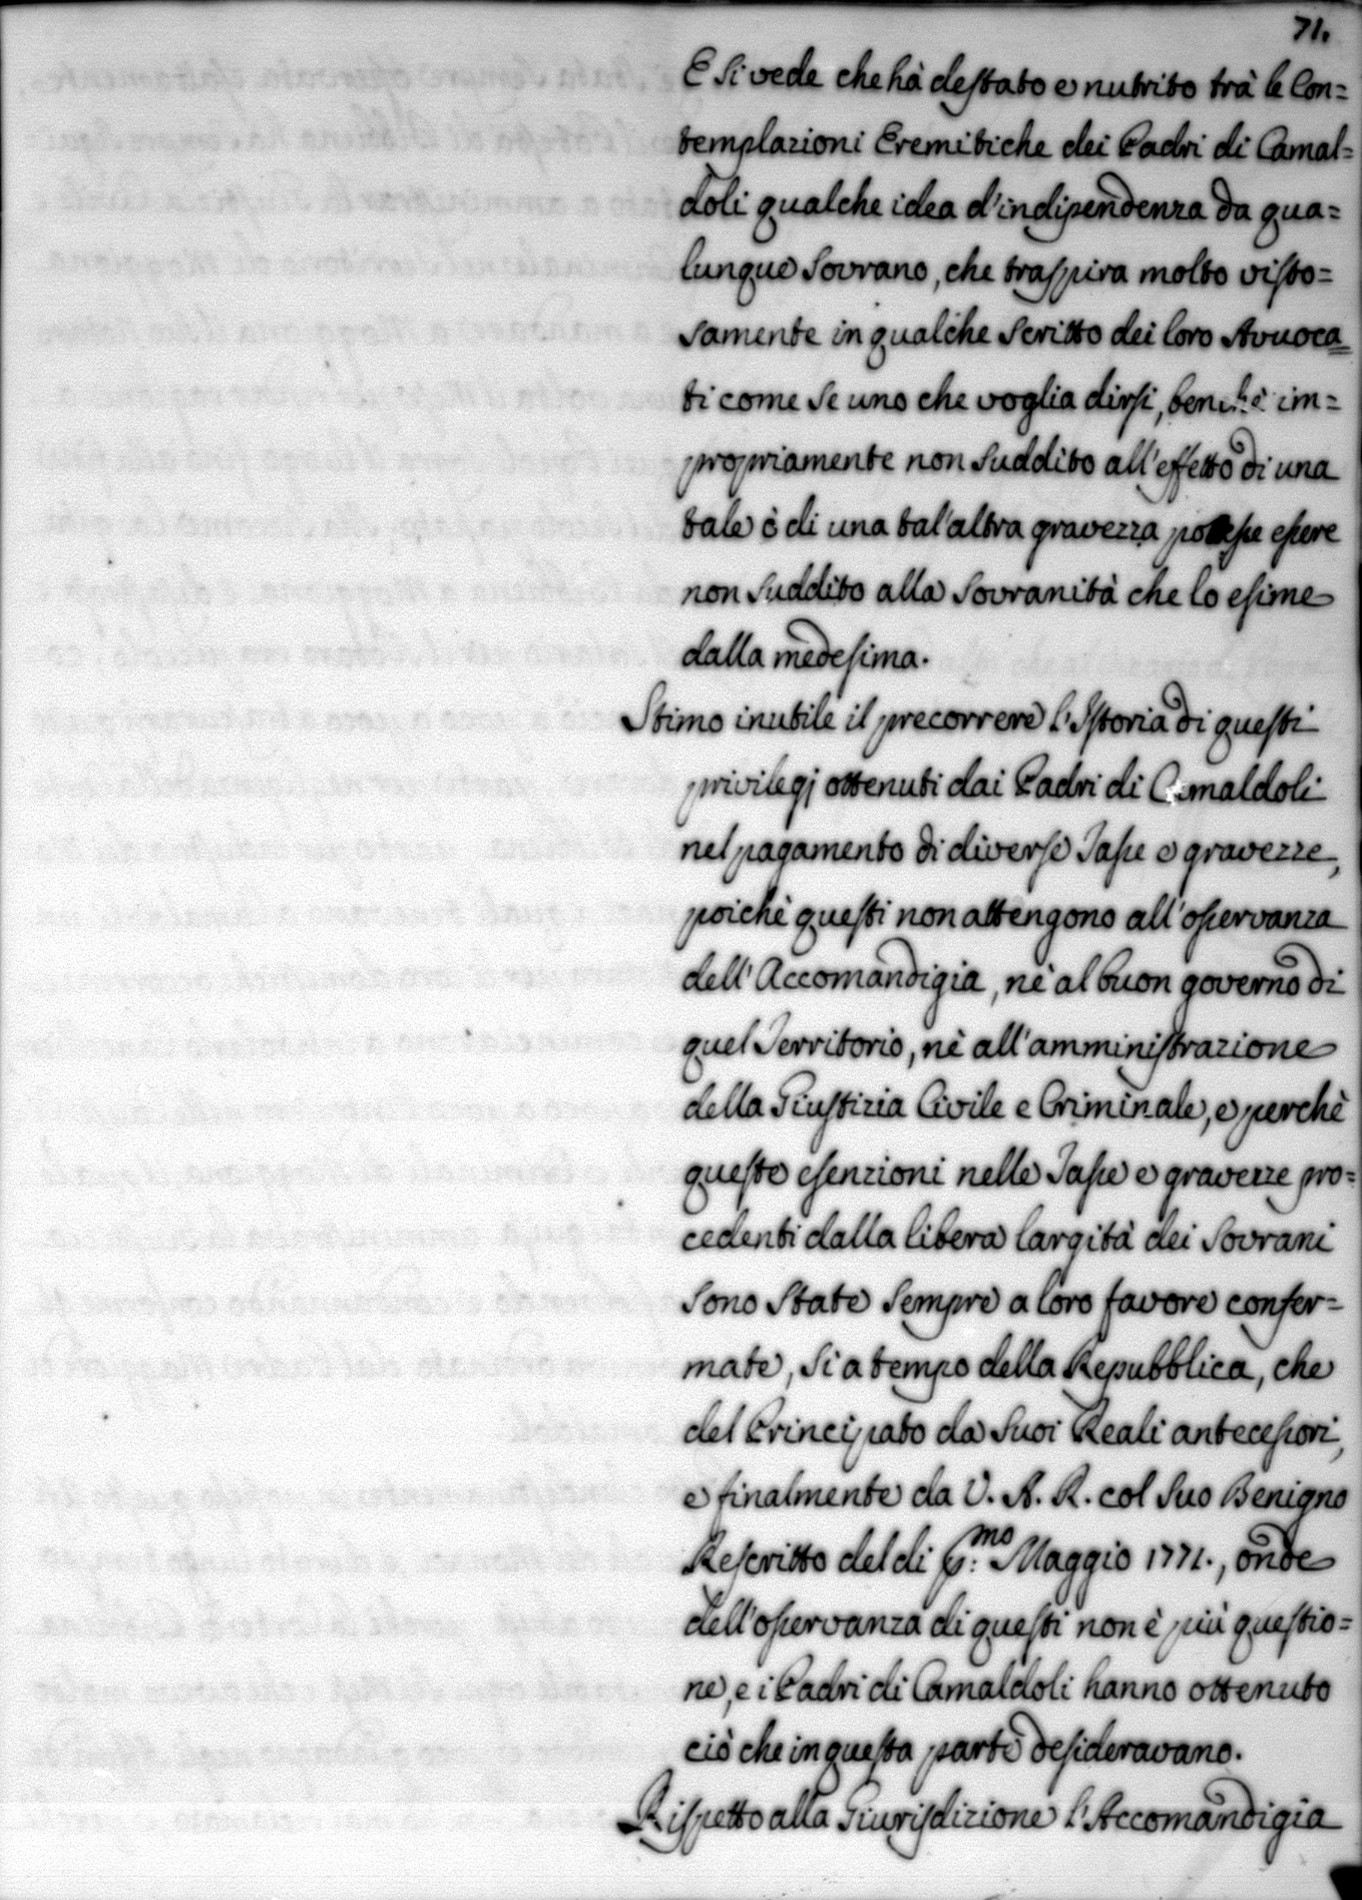 71.
E si vede che hà destato e nutrito trà le Con=
templazioni Eremitiche dei Padri di Camal=
doli qualche idea d'indipendenza da qua=
lunque Sovrano, che traspira molto visto=
samente in qualche scritto dei loro Avvoca=
ti come se uno che voglia dirsi, benchè im=
propriamente non suddito all'effetto di una
tale ò di una tal'altra gravezza potesse essere
non suddito alla Sovranità che lo esime
dalla medesima.
Stimo inutile il precorrere l'Istoria di questi
privilegj ottenuti dai Padri di Camaldoli
nel pagamento di diverse Tasse e gravezze,
poichè questi non attengono all'osservanza
dell'Accomandigia, nè al buon governo di
quel Territorio, nè all'amministrazione
della Giustizia Civile e Criminale, e perchè
queste esenzioni nelle Tasse e gravezze pro=
cedenti dalla libera largità dei Sovrani
sono state sempre a loro favore confer=
mate, si a tempo della Repubblica, che
del Principato da suoi Reali antecessori,
e finalmente da V. A. R. col suo Benigno
Rescritto del di p:mo Maggio 1771., onde
dell'osservanza di questi non è più questio=
ne, e i Padri di Camaldoli hanno ottenuto
ciò che in questa parte desideravano.
Rispetto alla Giurisdizione l'Accomandigia